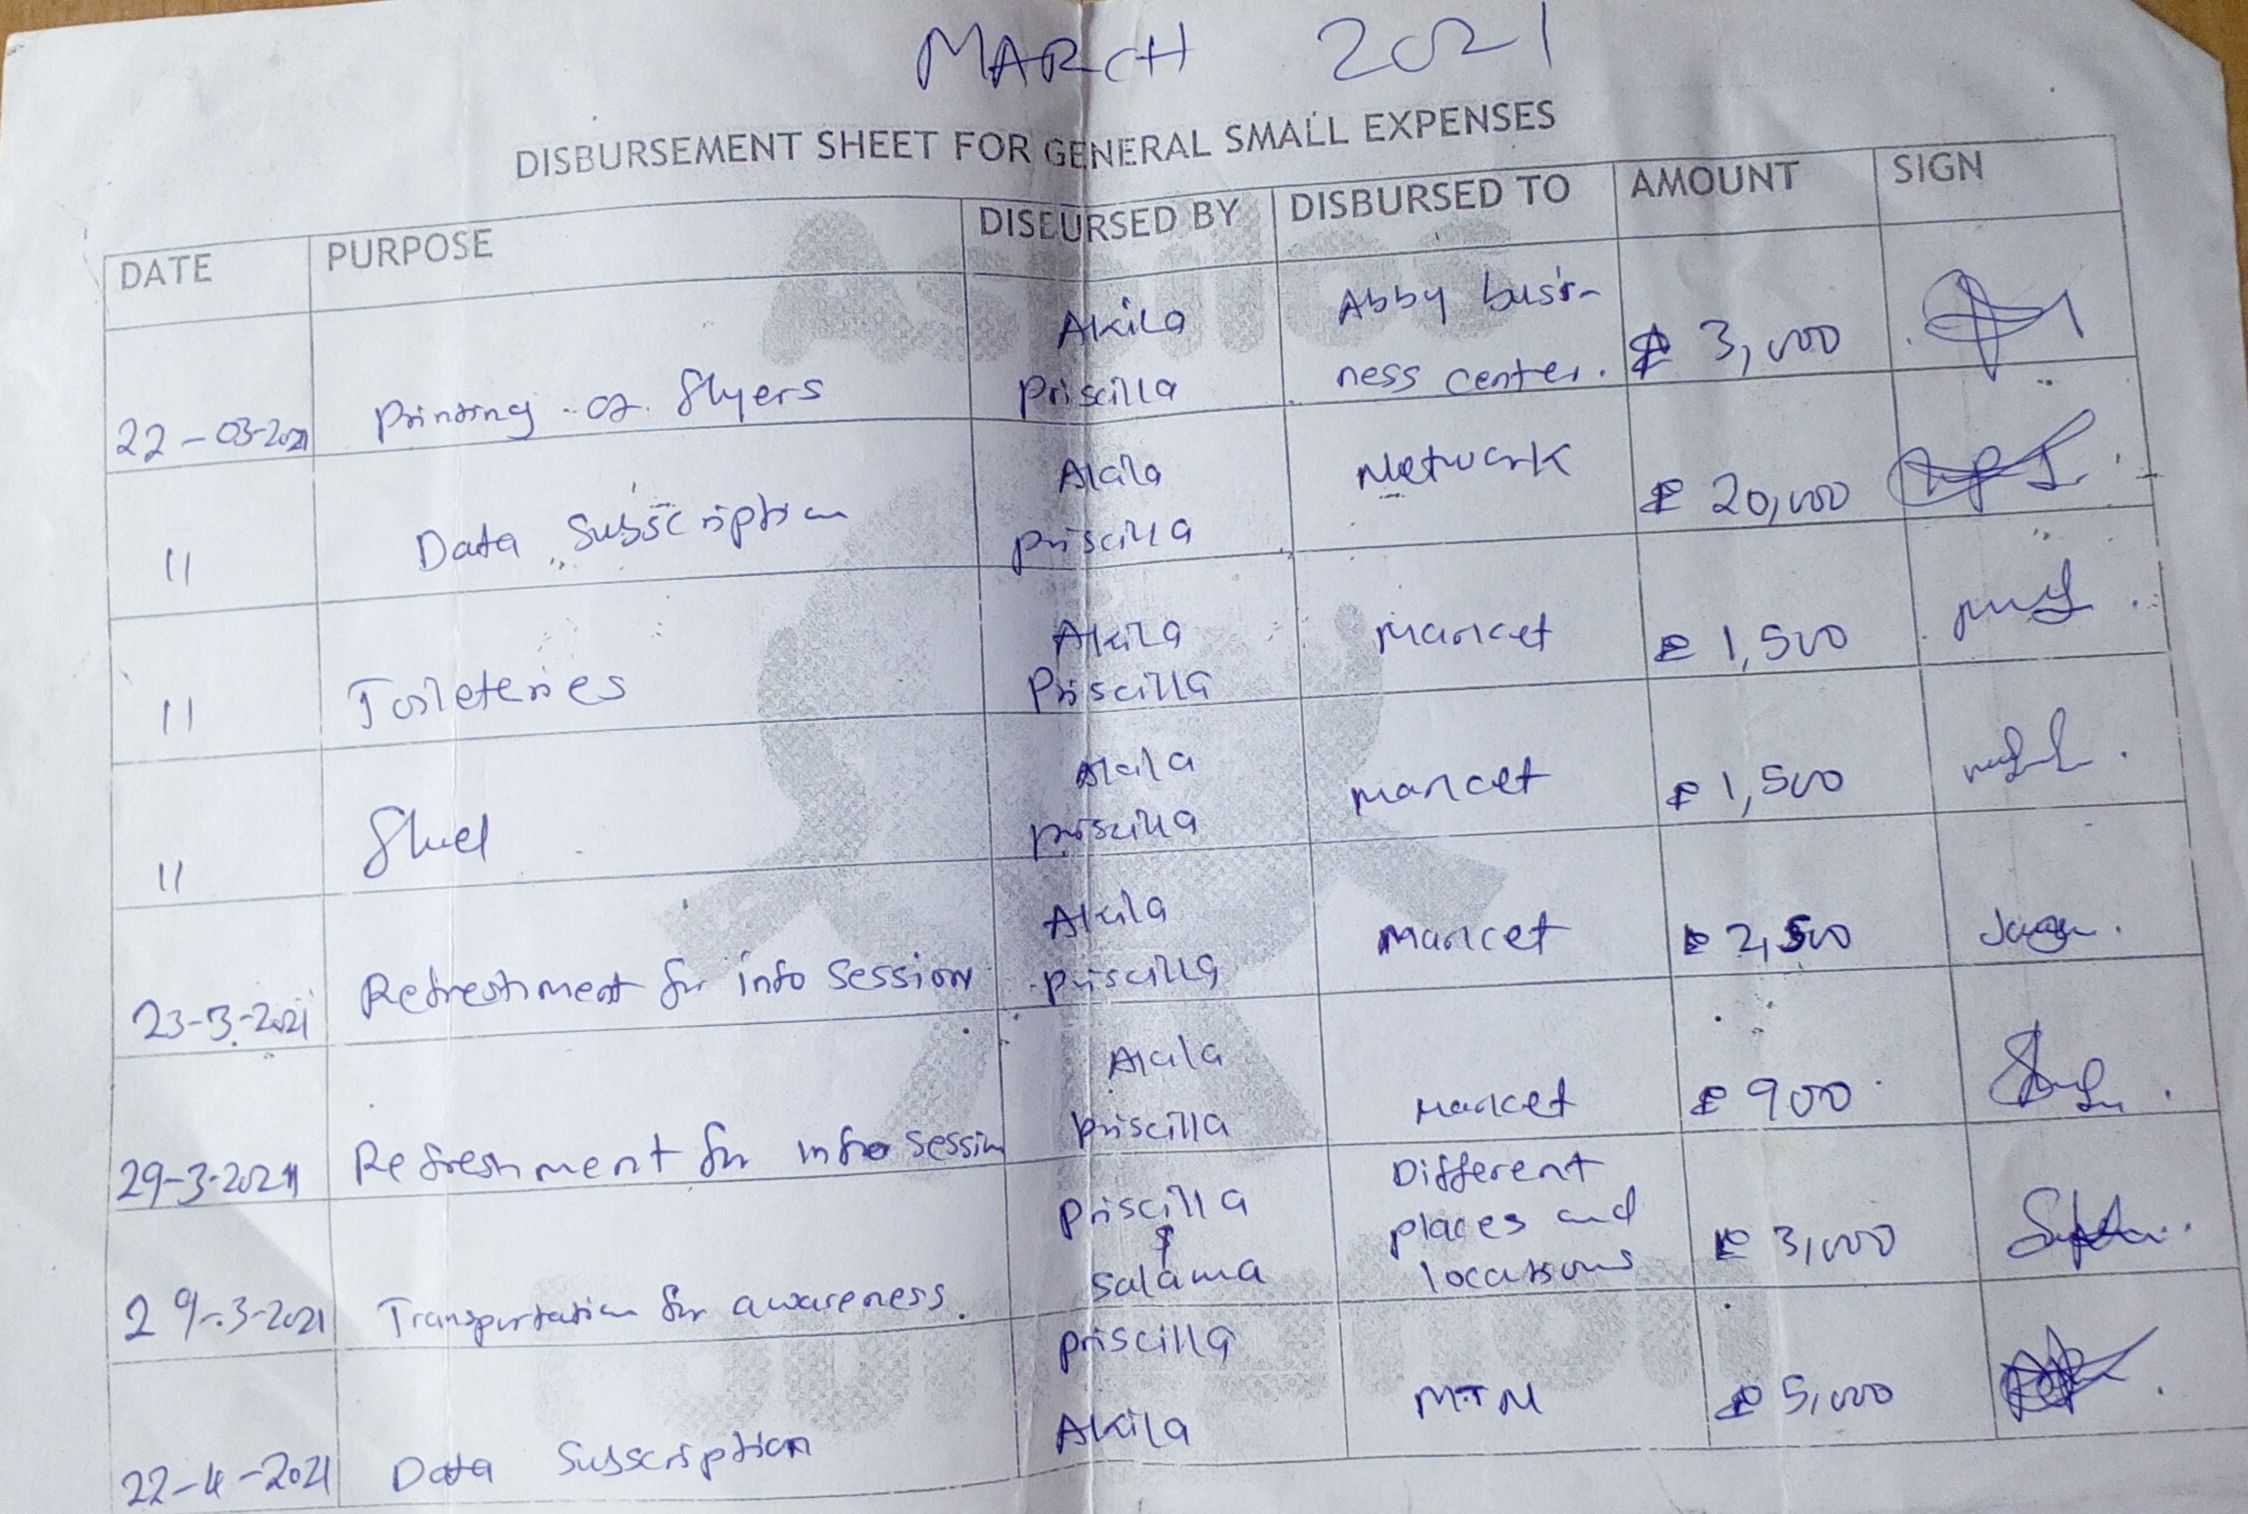 MARCH 2021
DISBURSEMENT SHEET FOR GENERAL SMALL EXPENSES
DATE PURPOSE DISBURSED BY DISBURSED TO AMOUNT SIGN
22-03-2021 Printing of flyers Akila Priscilla Abby busi- ness center. ₦ 3,000
11 Data Subscription Akila Priscilla Network ₦ 20,000
11 Toileteries Akila Priscilla Market ₦ 1,500
11 fuel Akila Priscilla Market ₦ 1,500
23-3-2021 Refreshment for info session Akila Priscilla Market ₦ 2,500
29-3-2021 Refreshment for info session Akila Priscilla Market ₦ 900
29-3-2021 Transportation for awareness. Priscilla & Salama Different places and locations ₦ 3,000
22-4-2021 Data Subscription Priscilla Akila MTN ₦ 5,000